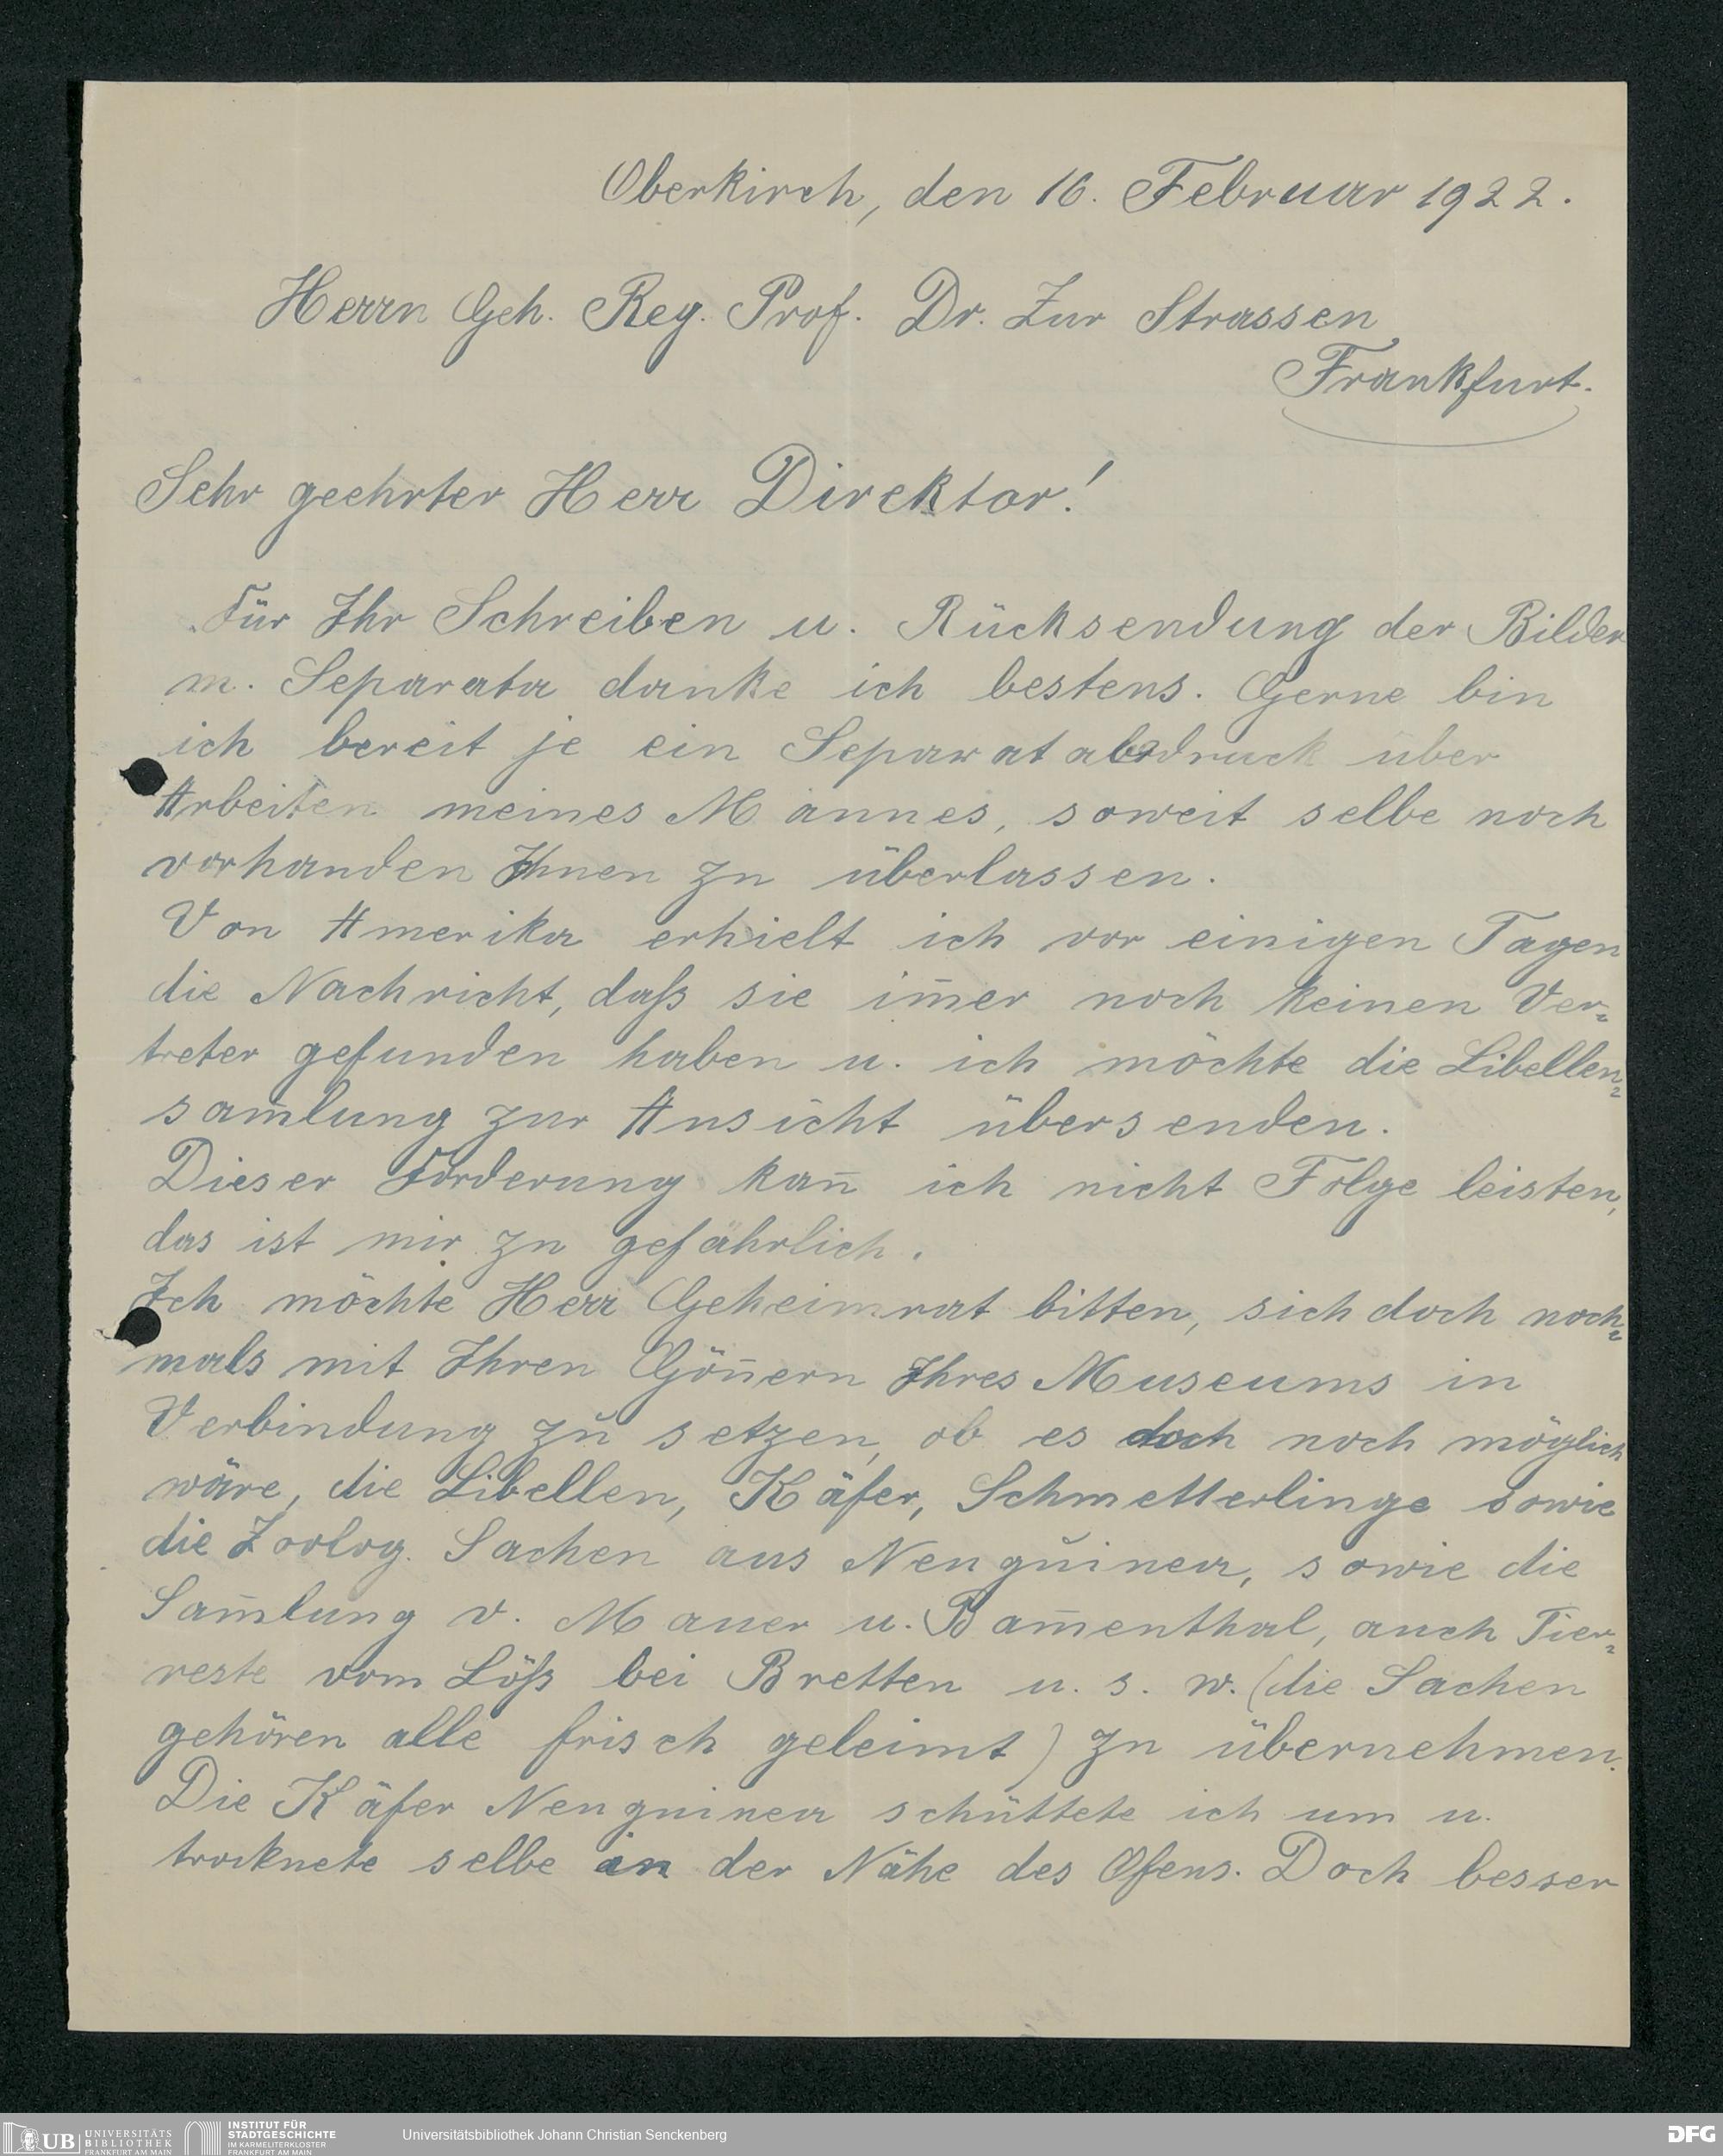 Oberkirch, den 16. Februar 1922.
Herrn Geh. Reg. Prof. Dr. Zur Strassen
Frankfurt.
Sehr geehrter Herr Direktor!
Für Ihr Schreiben u. Rücksendung der Bilder
m. Separata danke ich bestens. Gerne bin
ich bereit je ein Separatabdruck über
Arbeiten meines Mannes, soweit selbe noch
vorhanden Ihnen zu überlassen.
Von Amerika erhielt ich vor einigen Tagen
die Nachricht, daß sie im̅er noch keinen Ver-
treter gefunden haben u. ich möchte die Libellen-
sam̅lung zur Ansicht übersenden.
Dieser Forderung kan̅ ich nicht Folge leisten,
das ist mir zu gefährlich.
Ich möchte Herr Geheimrat bitten, sich doch noch-
mals mit Ihren Gön̅ern Ihres Museums in
Verbindung zu setzen, ob es doch noch möglich
wäre, die Libellen, Käfer, Schmetterlinge sowie
die Zoolog. Sachen aus Neuguinea, sowie die
Sam̅lung v. Mauer u. Bam̅enthal, auch Tier-
reste vom Löß bei Bretten u. s. w. (die Sachen
gehören alle frisch geleimt) zu übernehmen.
Die Käfer Neuguinea schüttete ich um u.
trocknete selbe in der Nähe des Ofens. Doch besser
UB UNIVERSITÄTS
BIBLIOTHEK
FRANKFURT AM MAIN
INSTITUT FÜR
STADTGESCHICHTE
IM KARMELITERKLOSTER
FRANKFURT AM MAIN
Universitätsbibliothek Johann Christian Senckenberg
DFG